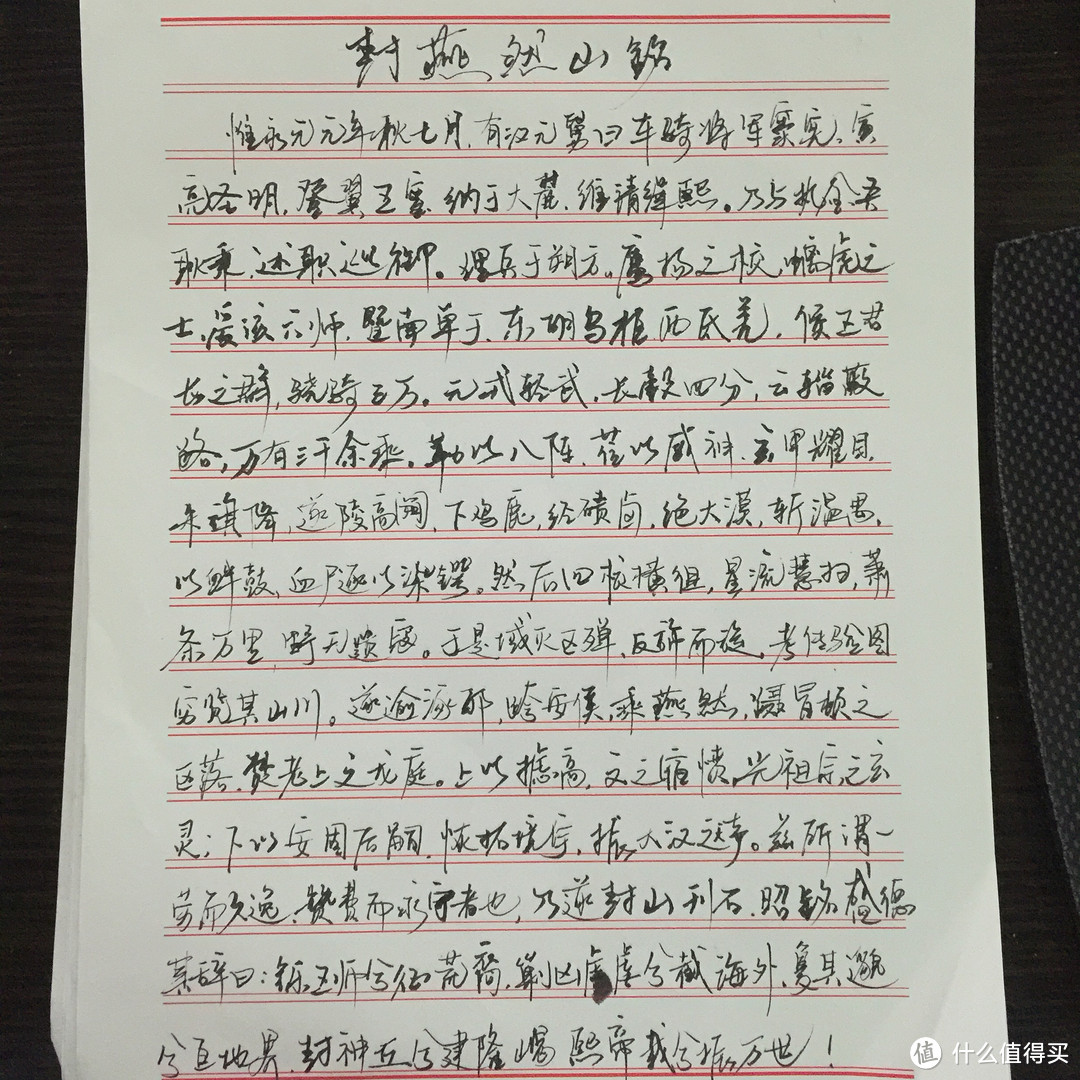 封燕然山铭
惟永元元年秋七月,有汉元舅曰车骑将军窦宪,寅
亮圣明,登翼王室,纳于大麓,维清缉熙。乃与执金吾
耿秉,述职巡御。理兵于朔方。鹰扬之校,螭虎之
士,爰该六师,暨南单于、东胡乌桓、西氐羌,侯王君
长之群,骁骑三万。元戎轻武,长毂四分,云辎蔽
路,万有三千余乘。勒以八阵,莅以威神,玄甲耀目,
朱旗降,遂陵高阙,下鸡鹿,经碛卤,绝大漠,斩温禺,
以衅鼓,血尸逐以染锷。然后四校横徂,星流慧扫,萧
条万里,野无遗寇。于是域灭区殚,反旆而旋,考传验图
穷览其山川。遂逾涿邪,跨安侯,乘燕然,蹑冒顿之
区落,焚老上之龙庭。上以摅高、文之宿愤,光祖宗之玄
灵;下以安固后嗣,恢拓境宇,振大汉之声。兹所谓一
劳而久逸,暂费而永宁者也,乃遂封山刊石,昭铭盛德
其辞曰:铄王师兮征荒裔,剿凶虐兮截海外,夐其邈
兮亘地界,封神丘兮建隆嵑,熙帝载兮振万世!
值 什么值得买